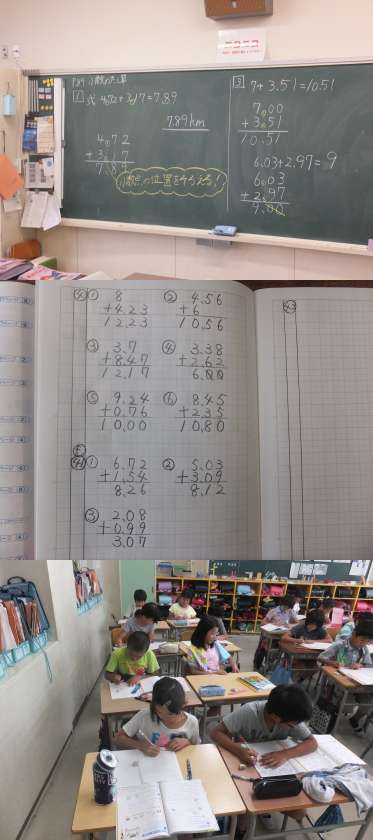 P.89 小数のたし算
1 式 4.72+3.17=7.89
4.72
+3.17
7.89
7.89km
小数点の位置をそろえる!
3 7+3.51=10.51
7.00
+3.51
10.51
6.03+2.97=9
6.03
+2.97
9.00
④① 8
+4.23
12.23
② 4.56
+6
10.56
③ 3.7
+8.47
12.17
④ 3.38
+2.62
6.00
⑤ 9.24
+0.76
10.00
⑥ 8.45
+2.35
10.80
① 6.72
+1.54
8.26
② 5.03
+3.09
8.12
③ 2.08
+0.99
3.07